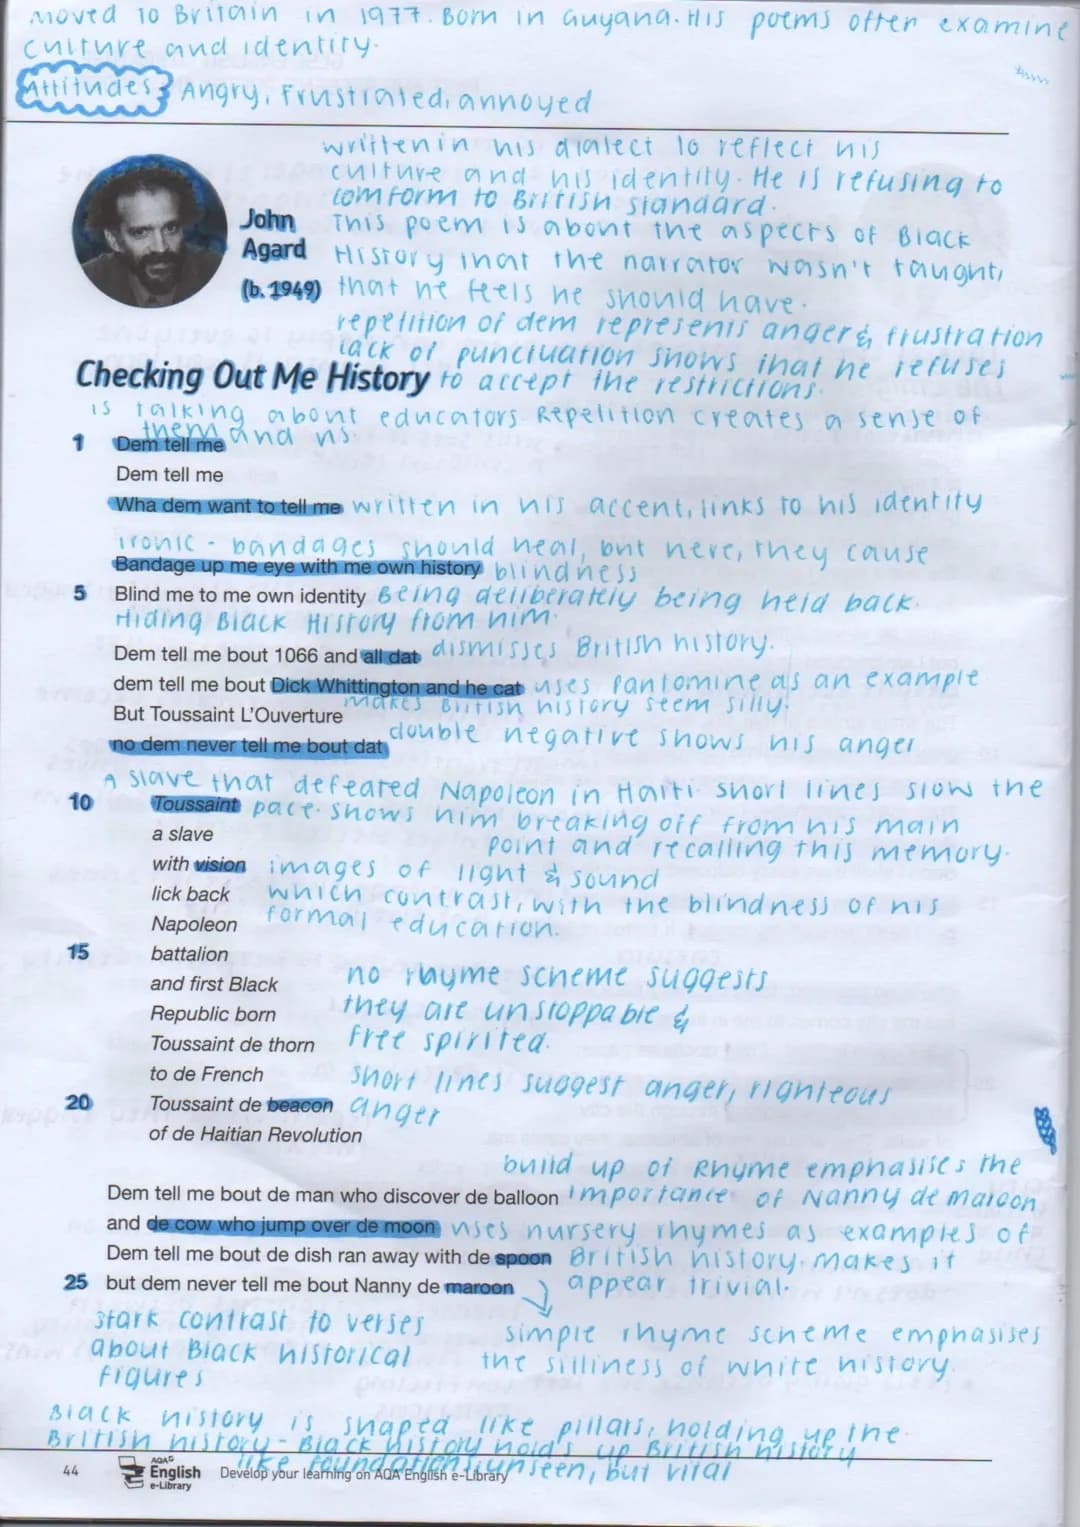 moved to Britain in 1977. Born in Guyana. His poems often examine
culture and identity.
Attitudes Angry, Frustrated, annoyed
written in his dialect to reflect his
culture and his identity. He is refusing to
comform to British standard.
John
Agard
(b. 1949)
This poem is about the aspects of Black
History that the narrator wasn't taught,
that he feels he should have.
repetition of dem represents anger & frustration
lack of punctuation shows that he refuses
Checking Out Me History to accept the restrictions.
is talking about educators. Repetition creates a sense of
them and us
1 Dem tell me
Dem tell me
Wha dem want to tell me written in his accent, links to his identity
ironic - bandages should heal, but here, they cause
Bandage up me eye with me own history blindness
5 Blind me to me own identity Being deliberately being held back.
Hiding Black History from him.
Dem tell me bout 1066 and all dat dismisses British history.
dem tell me bout Dick Whittington and he cat uses Pantomine as an example
makes British history seem silly.
But Toussaint L'Ouverture
no dem never tell me bout dat double negative shows his anger
A slave that defeated Napoleon in Haiti. short lines slow the
10 Toussaint pace. Shows him breaking off from his main
a slave point and recalling this memory.
with vision images of light & sound
lick back which contrast, with the blindness of his
Napoleon formal education.
15 battalion
and first Black no rhyme scheme suggests
Republic born they are unstoppable &
Toussaint de thorn free spirited.
to de French short lines suggest anger, righteous
20 Toussaint de beacon anger
of de Haitian Revolution
build up of Rhyme emphasises the
Dem tell me bout de man who discover de balloon importance of Nanny de maroon
and de cow who jump over de moon uses nursery rhymes as examples of
Dem tell me bout de dish ran away with de spoon British history. Makes it
25 but dem never tell me bout Nanny de maroon appear trivial.
stark contrast to verses
about Black historical
figures
simple rhyme scheme emphasises
the silliness of white history.
Black history is shaped like pillars, holding up the
British history - Black history hold's up British history
like foundations, unseen, but vital
44 AQA English e-Library Develop your learning on AQA English e-Library